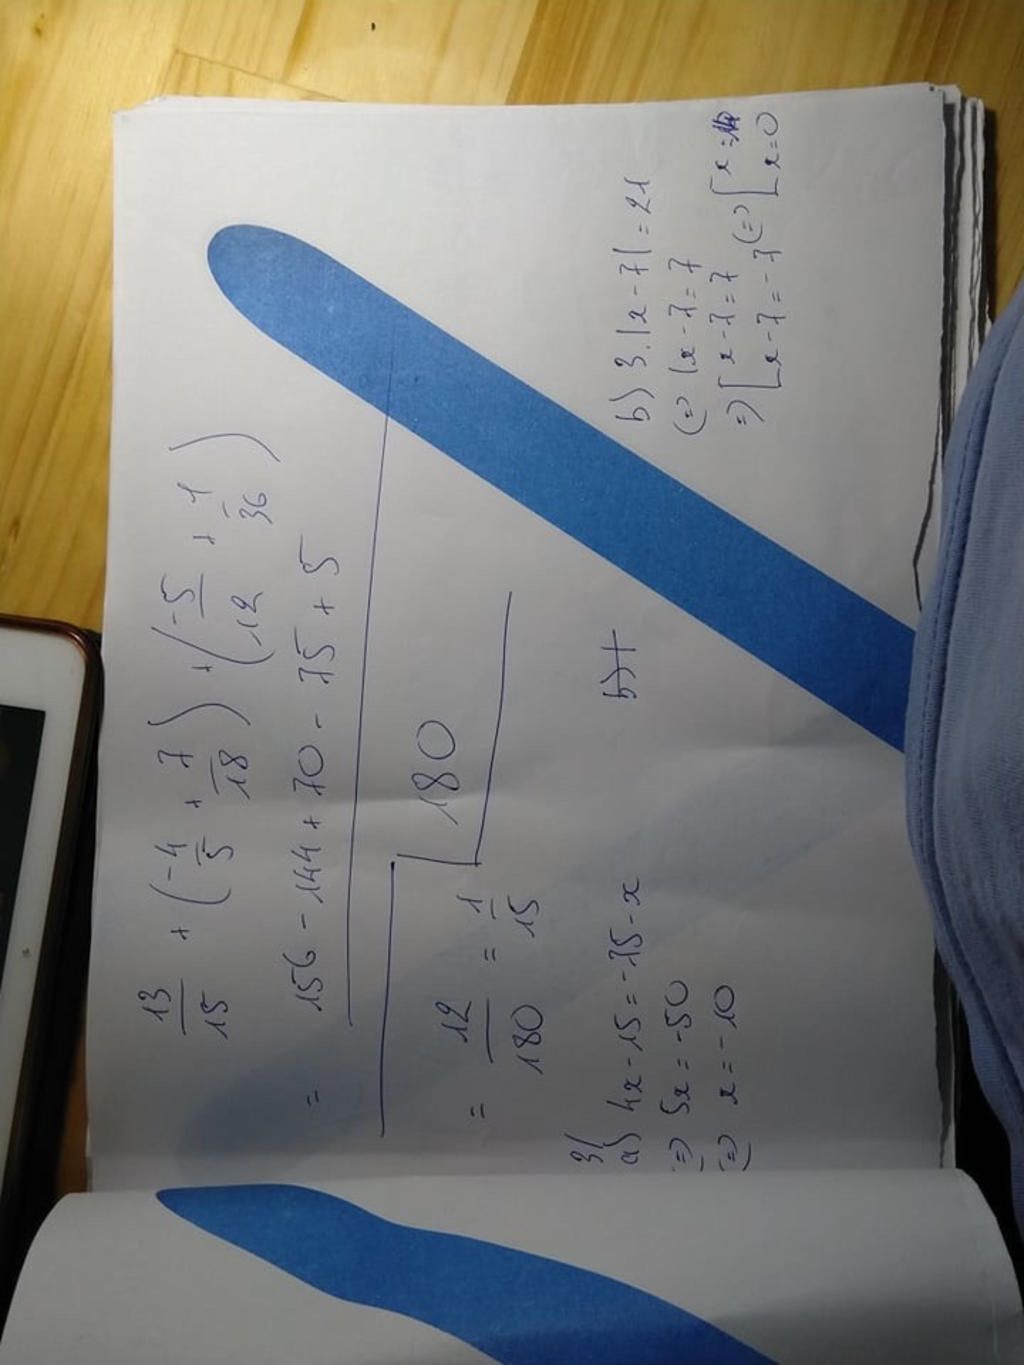 13/15 + (-4/5 + 7/18) + (-5/12 + 1/36)
= 156 - 144 + 70 - 75 + 5
180
= 12/180 = 1/15
3/
a) 4x - 15 = -75 - x
(=) 5x = -50
(=) x = -10
b) +
b) 3.|x - 7| = 21
(=) |x - 7 = 7
=) [ x - 7 = 7 [ x = 14
[ x - 7 = -7 (=) [ x = 0